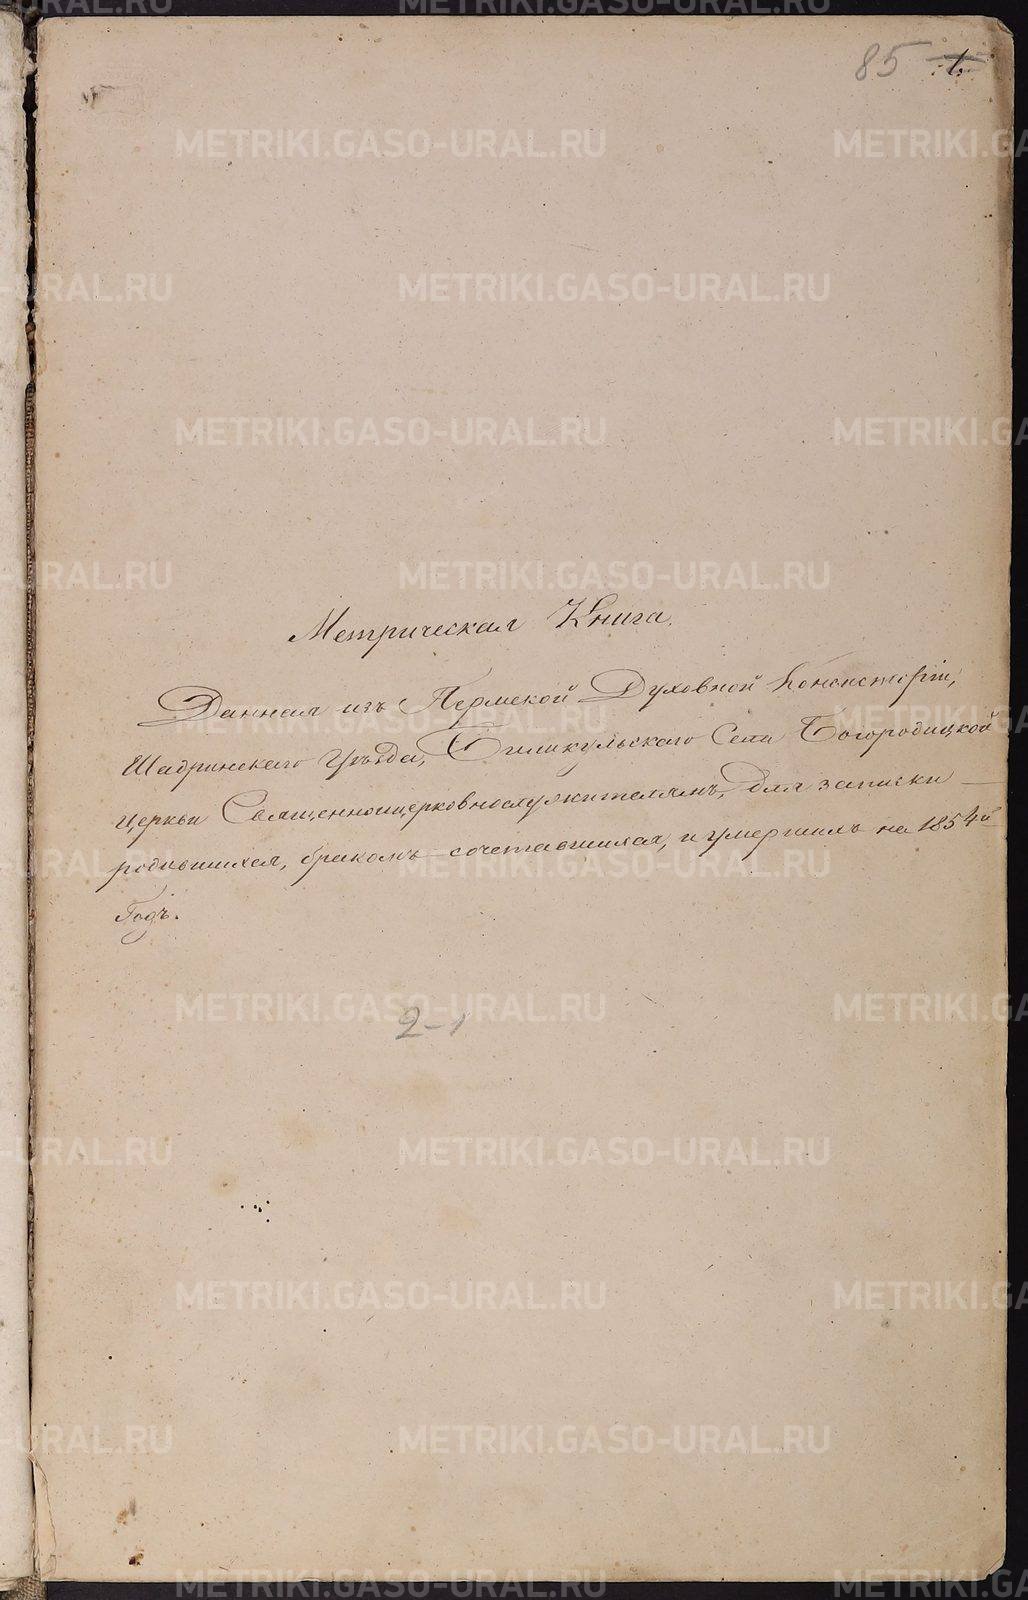 85 1.
Метрическая Книга.
Данная изъ Пермской Духовной Консисторіи,
Шадринскаго Уѣзда, Биликульскаго Села Богородицкой
церкви Священноцерковнослужителямъ, для записки
родившихся, бракомъ сочетавшихся, и умершихъ на 1854й
Годъ.
2-1
METRIKI.GASO-URAL.RU